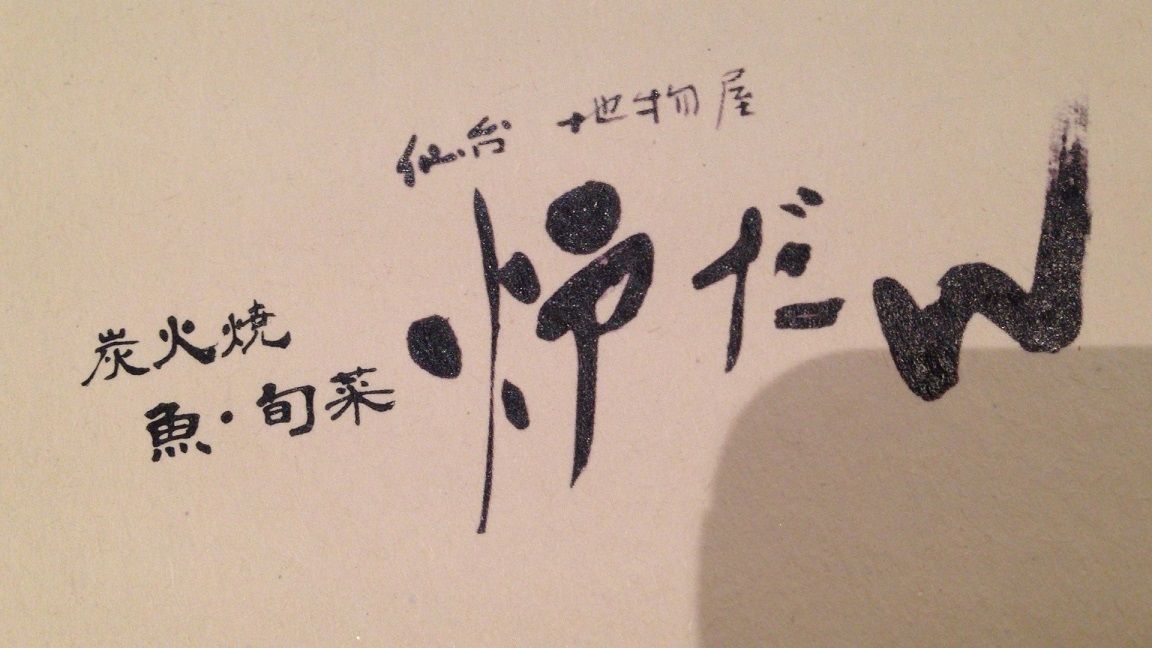 仙台 地物屋
炉だん
炭火焼
魚・旬菜